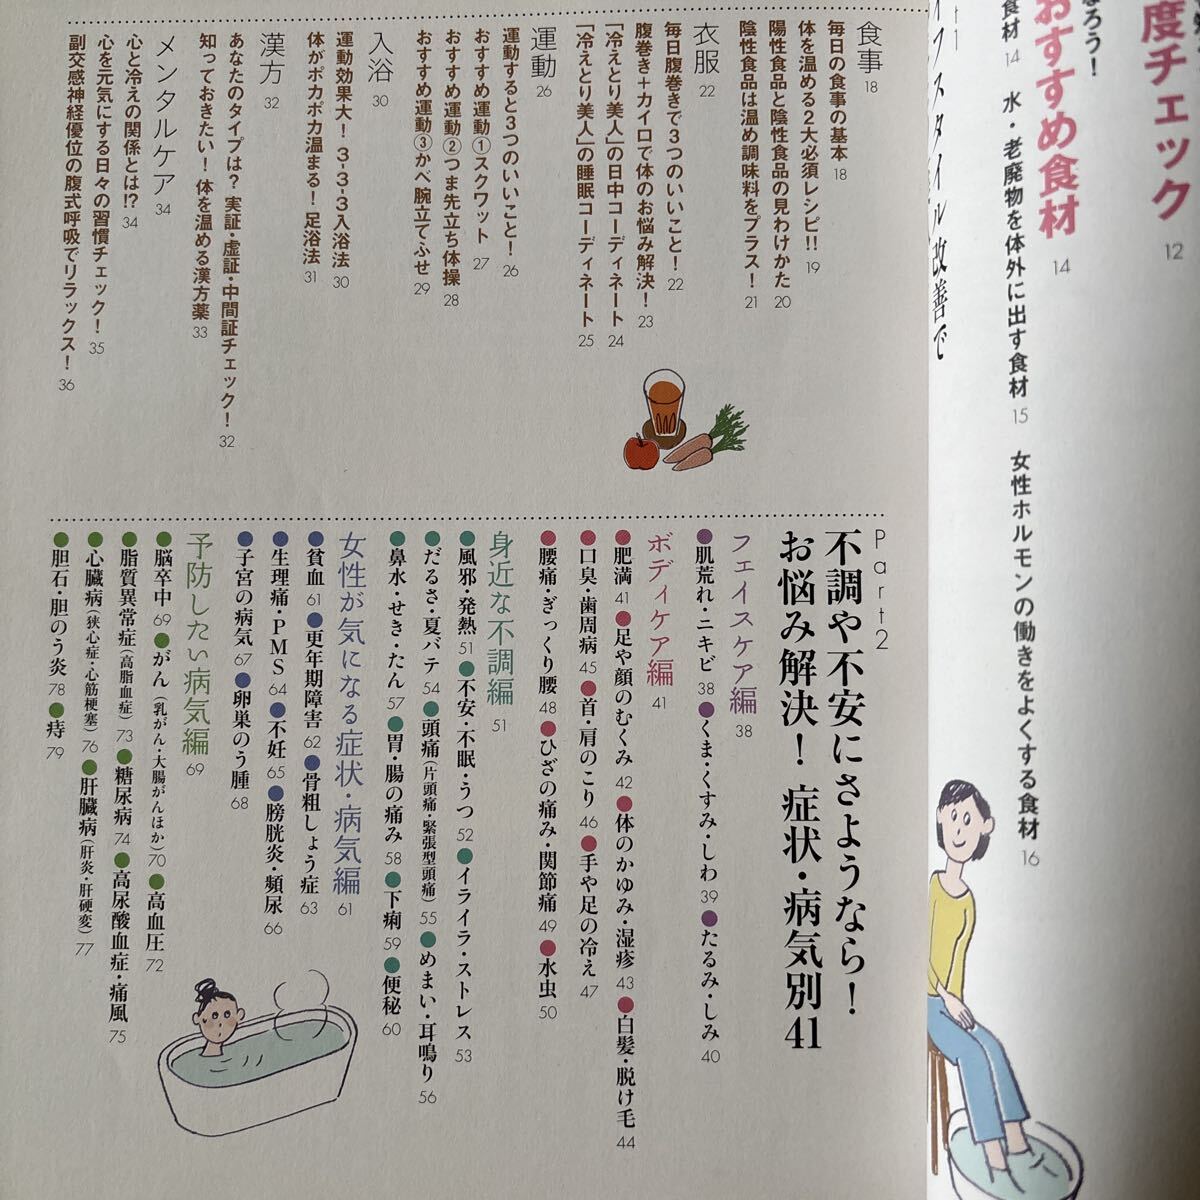 度チェック 12
なろう!
おすすめ食材 14
食材 14 水・老廃物を体外に出す食材 15 女性ホルモンの働きをよくする食材 16
イフスタイル改善で
食事 18
毎日の食事の基本 18
体を温める2大必須レシピ!! 19
陽性食品と陰性食品の見わけかた 20
陰性食品は温め調味料をプラス! 21
衣服 22
毎日腹巻きで3つのいいこと! 22
腹巻き+カイロで体のお悩み解決! 23
「冷えとり美人」の日中コーディネート 24
「冷えとり美人」の睡眠コーディネート 25
運動 26
運動すると3つのいいこと! 26
おすすめ運動①スクワット 27
おすすめ運動②つま先立ち体操 28
おすすめ運動③かべ腕立てふせ 29
入浴 30
運動効果大! 3-3-3入浴法 30
体がポカポカ温まる! 足浴法 31
漢方 32
あなたのタイプは? 実証・虚証・中間証チェック! 32
知っておきたい! 体を温める漢方薬 33
メンタルケア 34
心と冷えの関係とは!? 34
心を元気にする日々の習慣チェック! 35
副交感神経優位の腹式呼吸でリラックス! 36
Part2
不調や不安にさようなら!
お悩み解決! 症状・病気別41
フェイスケア編 38
●肌荒れ・ニキビ 38 ●くま・くすみ・しわ 39 ●たるみ・しみ 40
ボディケア編 41
●肥満 41 ●足や顔のむくみ 42 ●体のかゆみ・湿疹 43 ●白髪・脱け毛 44
●口臭・歯周病 45 ●首・肩のこり 46 ●手や足の冷え 47
●腰痛・ぎっくり腰 48 ●ひざの痛み・関節痛 49 ●水虫 50
身近な不調編 51
●風邪・発熱 51 ●不安・不眠・うつ 52 ●イライラ・ストレス 53
●だるさ・夏バテ 54 ●頭痛(片頭痛・緊張型頭痛) 55 ●めまい・耳鳴り 56
●鼻水・せき・たん 57 ●胃・腸の痛み 58 ●下痢 59 ●便秘 60
女性が気になる症状・病気編 61
●貧血 61 ●更年期障害 62 ●骨粗しょう症 63
●生理痛・PMS 64 ●不妊 65 ●膀胱炎・頻尿 66
●子宮の病気 67 ●卵巣のう腫 68
予防したい病気編 69
●脳卒中 69 ●がん(乳がん・大腸がんほか) 70 ●高血圧 72
●脂質異常症(高脂血症) 73 ●糖尿病 74 ●高尿酸血症・痛風 75
●心臓病(狭心症・心筋梗塞) 76 ●肝臓病(肝炎・肝硬変) 77
●胆石・胆のう炎 78 ●痔 79